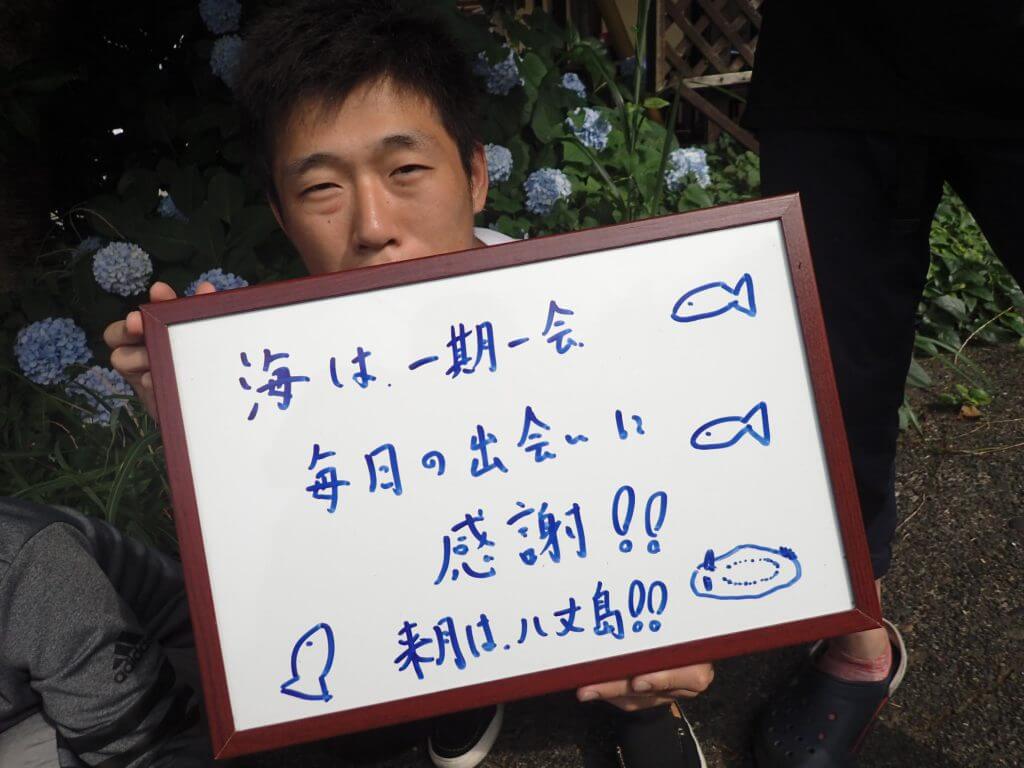 海は、一期一会
毎日の出会いに
感謝!!
来月は、八丈島!!
adidas